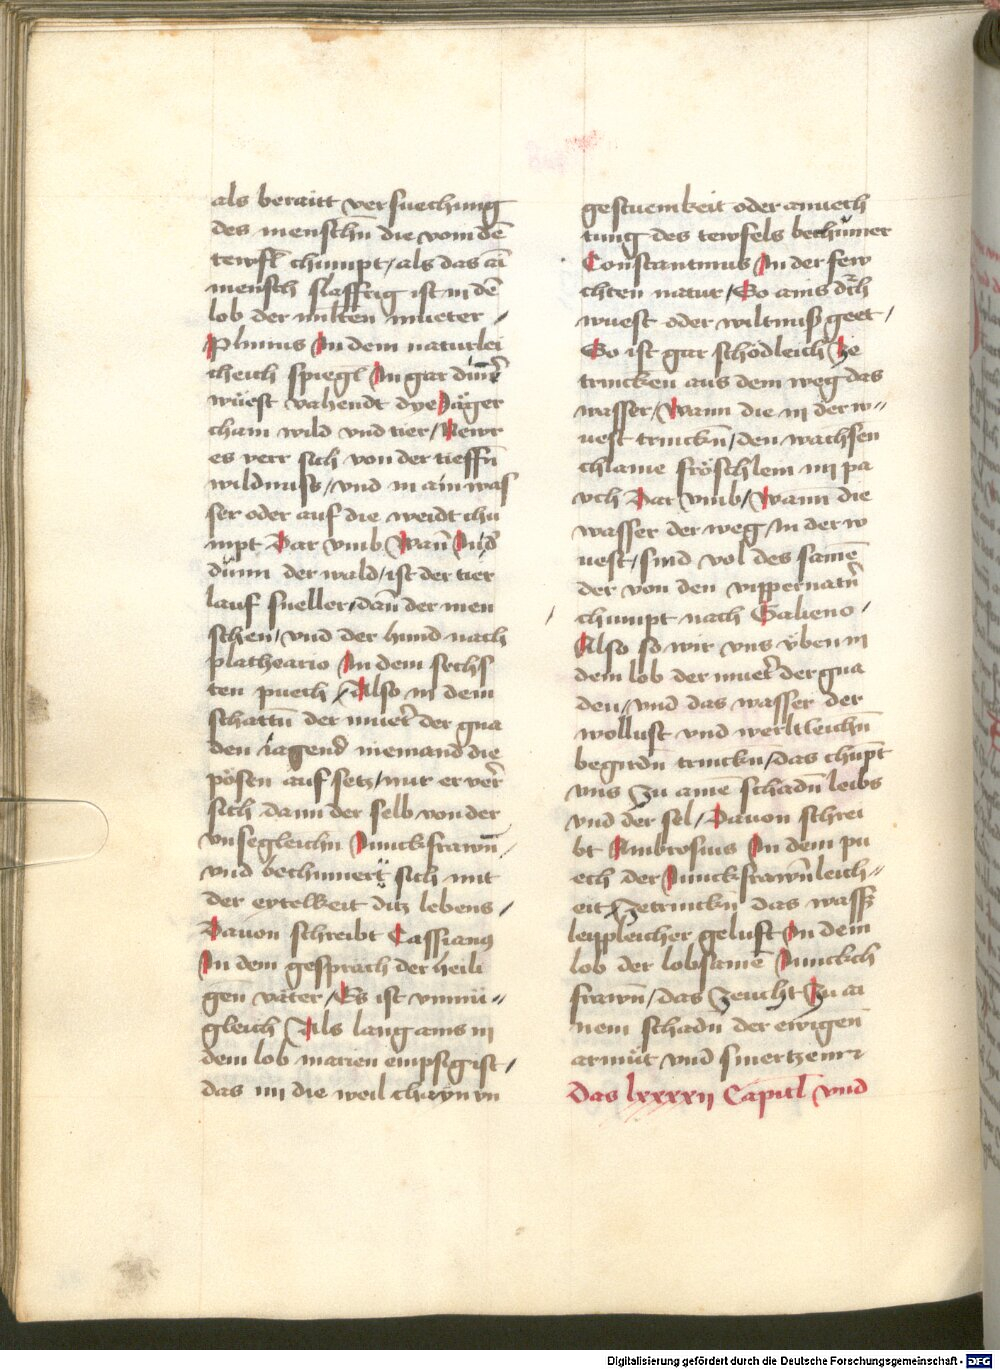 als beraitt versuechung
des menschn̄ die vom dē
tewfl̄ chumpt / als das ai
mensch slaffrig ist in dē
lob der milten mueter /
Plinius In dem naturlei
cheich spiegl̄ In gar dünē
wüest vahendt dye Jäger
cham wild vnd tier / Newr
es verr sich von der tieffn̄
wildnuss / vnd in ain was
ser oder auf die weidt chu
mpt Dar vmb Wan̄ In d
dünn der wald / ist der tier
lauf sneller / dan̄ der men
schen / vnd der hund nach
platheario In dem sechs
ten puech / Also in dem
schattn̄ der muet̄ der gna
den iagend niemand die
pösen auf setz / nur er verr̄
sich dann der selb von der
vnsegleichn Junckfrawn̄ /
vnd bechümert sich mit
der eytelkeit ditz lebens /
Dauon schreibt Cassianus
In dem gesprach der heili
gen väter / Es ist vnmü=
gleich Als lang ains in
dem lob marien empsig ist /
das im die weil chayn vn
gestuemkeit oder anuech
tung des tewfels bechümer
Constantinus In der few
chten natur / So ains durch
wuest oder wiltnuß geet /
So ist gar schödleich Ze
trincken aus dem weg das
wasser / Wann die in der w=
uest trinckn̄ / den wachsen
chlaine fröschlein im pa
uch Dar vmb / Wann die
wasser der weg / in der w
uest / sind vol des samē
der von den vippernatn̄
chumpt nach Galieno /
Also so wir vns yben in
dem lob der muet̄ der gna
den / vnd das wasser der
wollust vnd werltleichn̄
begirdn trinckn / das chūpt
vns zu aine schadn̄ leibs
vnd der sel / Dauon schrei
bt Ambrosius In dem pu
ech der Junckfrawn̄leich=
eit Zetrinckn̄ das wasser
leippleicher gelust In dem
lob der lobsamē Junckch
frawn̄ / das zeucht Zu ai
nem schadn̄ der ewigen
armüt vnd smertzen
Das lxxxxii Capitl̄ vnd
Digitalisierung gefördert durch die Deutsche Forschungsgemeinschaft - DFG